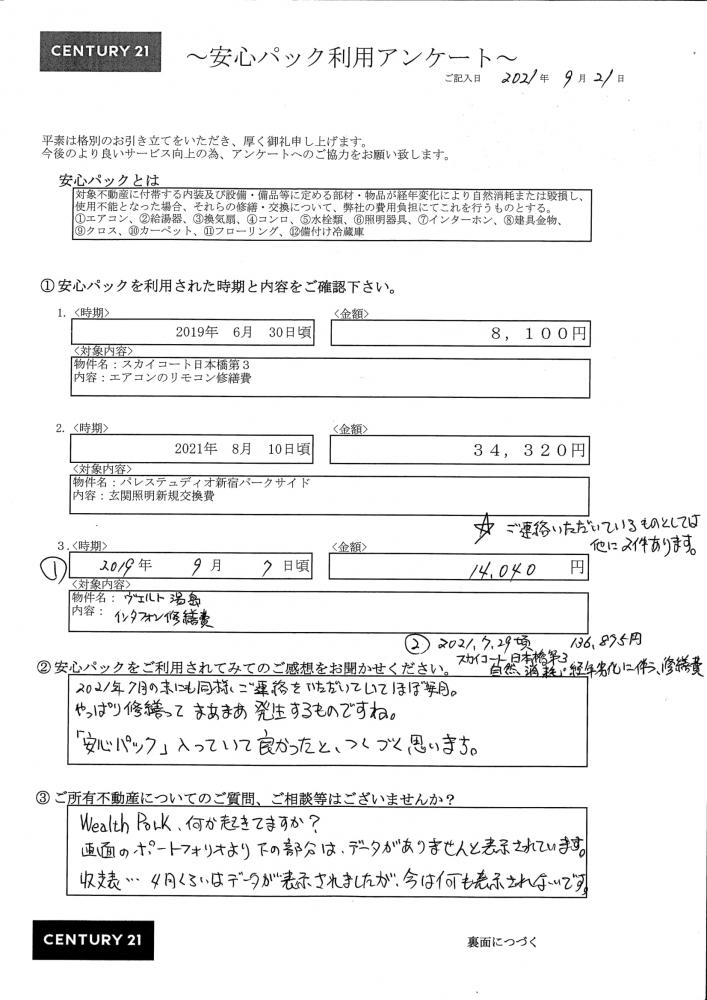 CENTURY 21
～安心パック利用アンケート～
ご記入日 2021年 9月 21日
平素は格別のお引き立てをいただき、厚く御礼申し上げます。
今後のより良いサービス向上の為、アンケートへのご協力をお願い致します。
安心パックとは
対象不動産に付帯する内装及び設備・備品等に定める部材・物品が経年変化により自然消耗または毀損し、
使用不能となった場合、それらの修繕・交換について、弊社の費用負担にてこれを行うものとする。
①エアコン、②給湯器、③換気扇、④コンロ、⑤水栓類、⑥照明器具、⑦インターホン、⑧建具金物、
⑨クロス、⑩カーペット、⑪フローリング、⑫備付け冷蔵庫
①安心パックを利用された時期と内容をご確認下さい。
1.〈時期〉 〈金額〉
2019年 6月 30日頃 8,100円
〈対象内容〉
物件名：スカイコート日本橋第3
内容：エアコンのリモコン修繕費
2.〈時期〉 〈金額〉
2021年 8月 10日頃 34,320円
〈対象内容〉
物件名：パレステュディオ新宿パークサイド
内容：玄関照明新規交換費
☆ ご連絡いただいているものとしては
他に2件あります。
3.〈時期〉 〈金額〉
① 2019年 9月 7日頃 14,040円
〈対象内容〉
物件名：ヴェルト湯島
内容：インタフォン修繕費
② 2021.7.29頃 136,895円
スカイコート日本橋第3
自然消耗・経年劣化に伴う、修繕費
②安心パックをご利用されてみてのご感想をお聞かせください。
2021年7月の末にも同様、ご連絡をいただいていてほぼ毎月。
やっぱり修繕ってまあまあ発生するものですね。
「安心パック」入っていて良かったと、つくづく思います。
③ご所有不動産についてのご質問、ご相談等はございませんか？
Wealth Park、何か起きてますか？
画面のポートフォリオより下の部分は、データがありませんと表示されています。
収支表… 4月くらいはデータが表示されましたが、今は何も表示されないです。
CENTURY 21
裏面につづく